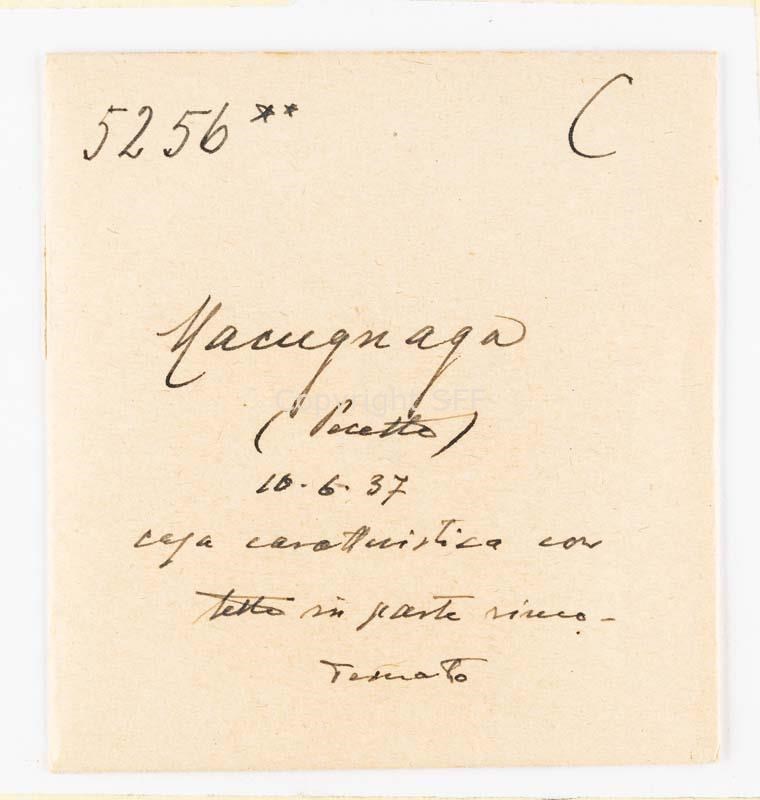 5256** C
Macugnaga
Copyright SFF
(Pecetto)
10-6-37
casa caratteristica con
tetto in parte rimo-
dernato